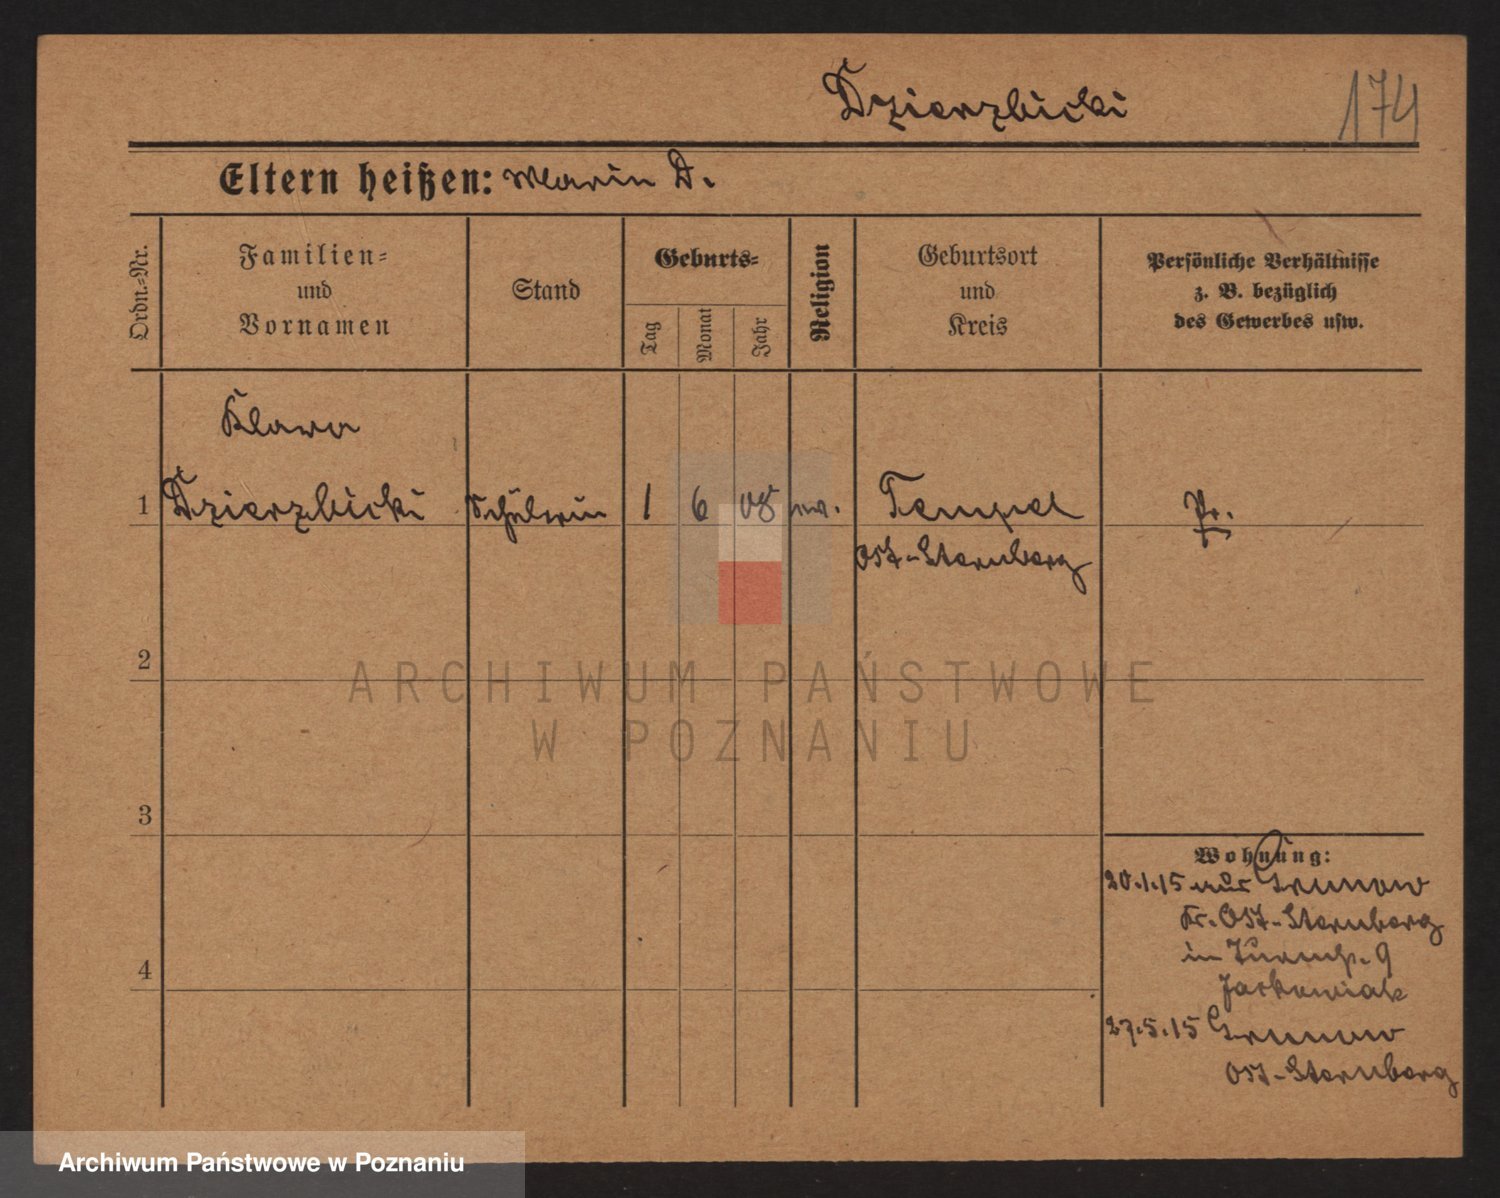 Dzierzbicki
174
Eltern heißen: Marie D.
Ordn.-Nr.
Familien-
und
Vornamen
Stand
Geburts-
Tag
Monat
Jahr
Religion
Geburtsort
und
Kreis
Persönliche Verhältnisse
z. B. bezüglich
des Gewerbes usw.
Klara
1 Dzierzbicki Schülerin 1 6 08 ev. Tempel Pr.
Ost-Sternberg
2
3
4
Wohnung:
20.1.15 aus Grunow
Kr. Ost-Sternberg
in Turmstr. 9
Jaskowiak
27.5.15 Grunow
Ost-Sternberg
ARCHIWUM PAŃSTWOWE
W POZNANIU
Archiwum Państwowe w Poznaniu